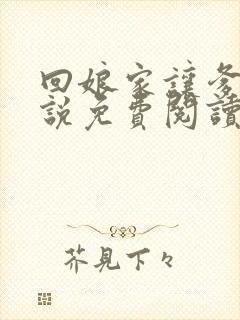 回娘家讓爹
說免費閱讀
芥見下々